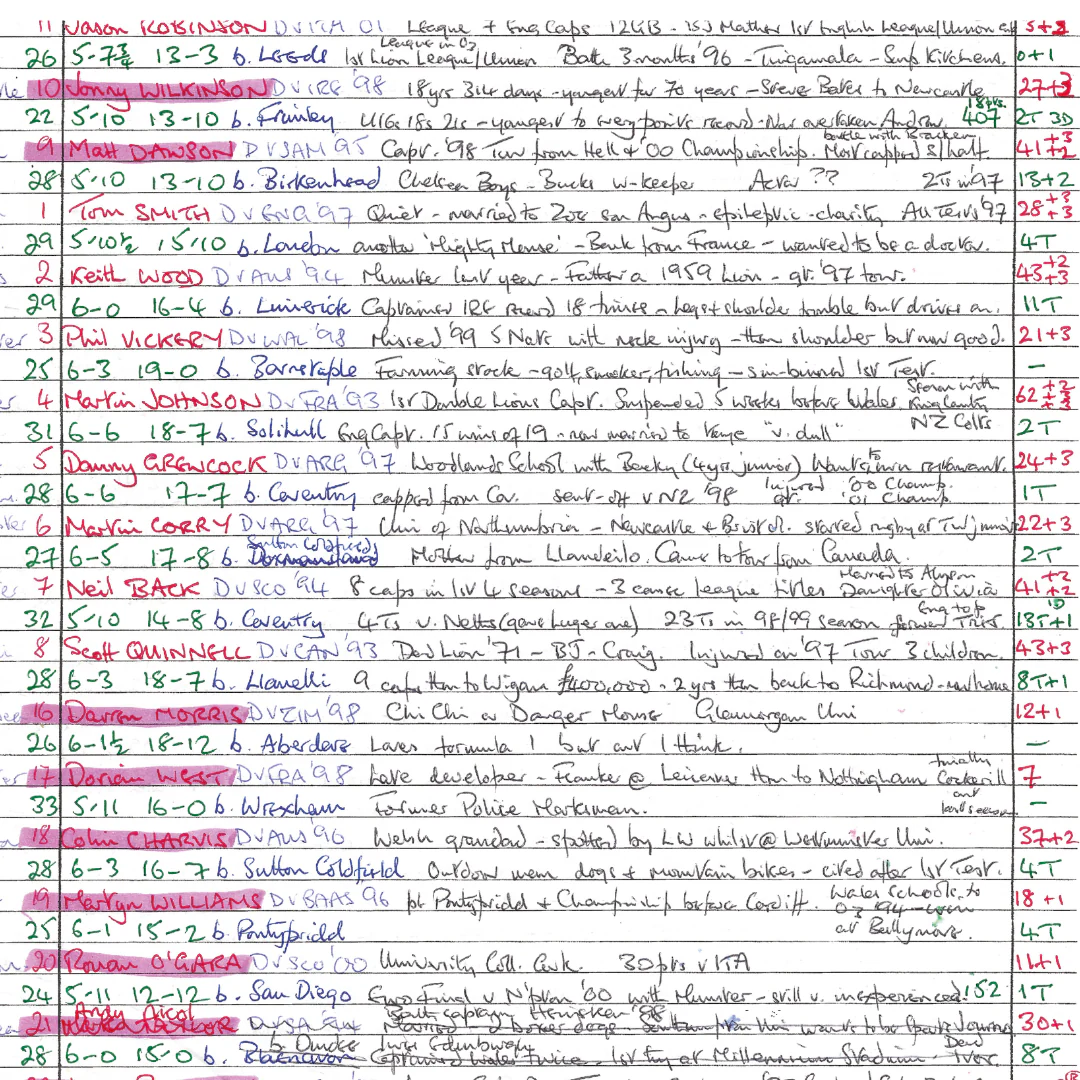 11 Jason ROBINSON DvITA 01 League + Eng Caps 12GB - Mother 1st English League/Union 5+2
League in Oz
26 5-7¾ 13-3 b. Leeds 1st Lion League/Union Bath 3 months '96 - Tingamala - Kitchens. 0+1
10 Jonny WILKINSON DvIRE '98 18yrs 314 days - youngest for 70 years - Steve Bates to Newcastle 27+3
18 pts.
22 5-10 13-10 b. Frimley U16s 18s 21s - youngest to every points record - Nov overtaken Andrew. 407 2T 3D
battle with Bracken +3
9 Matt DAWSON DvSAM '95 Capt. '98 Tour from Hell & '00 Championship. Most capped S/half. 41+2
28 5-10 13-10 b. Birkenhead Chelsea Boys - Bucks w-keeper Actor ?? 2Ts in '97 13+2
1 Tom SMITH DvENG '97 Quiet - married to Zoe son Angus - epileptic - charity All Tests '97 28+3+3
29 5-10½ 15-10 b. London another 'Mighty Mouse' - Back from France - wanted to be a doctor. 4T
2 Keith WOOD DvAUS '94 Munster last year - Father a 1959 Lion - gt. '97 tour. 43+2+3
29 6-0 16-4 b. Limerick Captained IRE record 18 times - leg & shoulder trouble but drives on. 11T
3 Phil VICKERY DvWAL '98 Missed '99 5 Nats with neck injury - then shoulder but now good. 21+3
25 6-3 19-0 b. Barnstaple Farming stock - golf, smoker, fishing - sin-binned 1st Test. -
4 Martin JOHNSON DvFRA '93 1st Double Lions Capt. Suspended 5 weeks before Wales. 62+2
31 6-6 18-7 b. Solihull Eng Capt. 15 wins of 19 - now married to Kange "v. dull" NZ Colts 2T
5 Danny GREWCOCK DvARG '97 Woodlands School with Becky (4yr. junior) Wants to retirement. 24+3
Injured '00 Champ.
28 6-6 17-7 b. Coventry capped from Cov. sent-off v NZ '98 gt. '01 Champ. 1T
6 Martin CORRY DvARG '97 Uni of Northumbria - Newcastle & Bristol. started rugby at Tun' juniors 22+3
Sutton Coldfield
27 6-5 17-8 b. Mother from Llandeilo. Came to tour from Canada. 2T
Married to Alyson
7 Neil BACK DvSCO '94 8 caps in 1st 4 seasons - 3 consec league titles Daughter Olivia 41+2+2
Eng top 1D
32 5-10 14-8 b. Coventry 4Ts v. Neths (gave Luger one) 23Ts in 98/99 season forward Tries 13T+1
8 Scott QUINNELL DvCAN '93 Dad Lion '71 - BJ - Craig. Injured on '97 Tour 3 children. 43+3
28 6-3 18-7 b. Llanelli 9 caps then to Wigan £400,000 - 2 yrs then back to Richmond - now home 8T+1
16 Darren MORRIS DvZIM '98 Chi Chi or Danger Mouse Glamorgan Uni 12+1
26 6-1½ 18-12 b. Aberdare Loves formula 1 but not 1 think. -
17 Dorian WEST DvFRA '98 Late developer - Flanker @ Leicester then to Nottingham finally Cockerill 7
33 5-11 16-0 b. Wrexham Former Police Marksman. and last season -
18 Colin CHARVIS DvAUS 96 Welsh grandad - spotted by LW whilst @ Westminster Uni. 37+2
28 6-3 16-7 b. Sutton Coldfield Outdoor man dogs & mountain bikes - cited after 1st Test. 4T
19 Martyn WILLIAMS DvBAAS 96 for Pontypridd & Championship before Cardiff. Wales schools to 18+1
Oz '94 - won
25 6-1 15-2 b. Pontypridd at Ballymore. 4T
20 Ronan O'GARA DvSCO '00 University Coll. Cork. 30pts v ITA 11+1
24 5-11 12-12 b. San Diego Euro Final v N'pton '00 with Munster - still v. inexperienced! 152 1T
Andy Nicol captain '98
21 Mark TAYLOR DvSA Married - 2 boxer dogs - wants to be Sports Journo 30+1
b. Dundee Edinburgh
28 6-0 15-0 b. Blaenavon Captained Wales twice - 1st try at Millennium Stadium - 8T